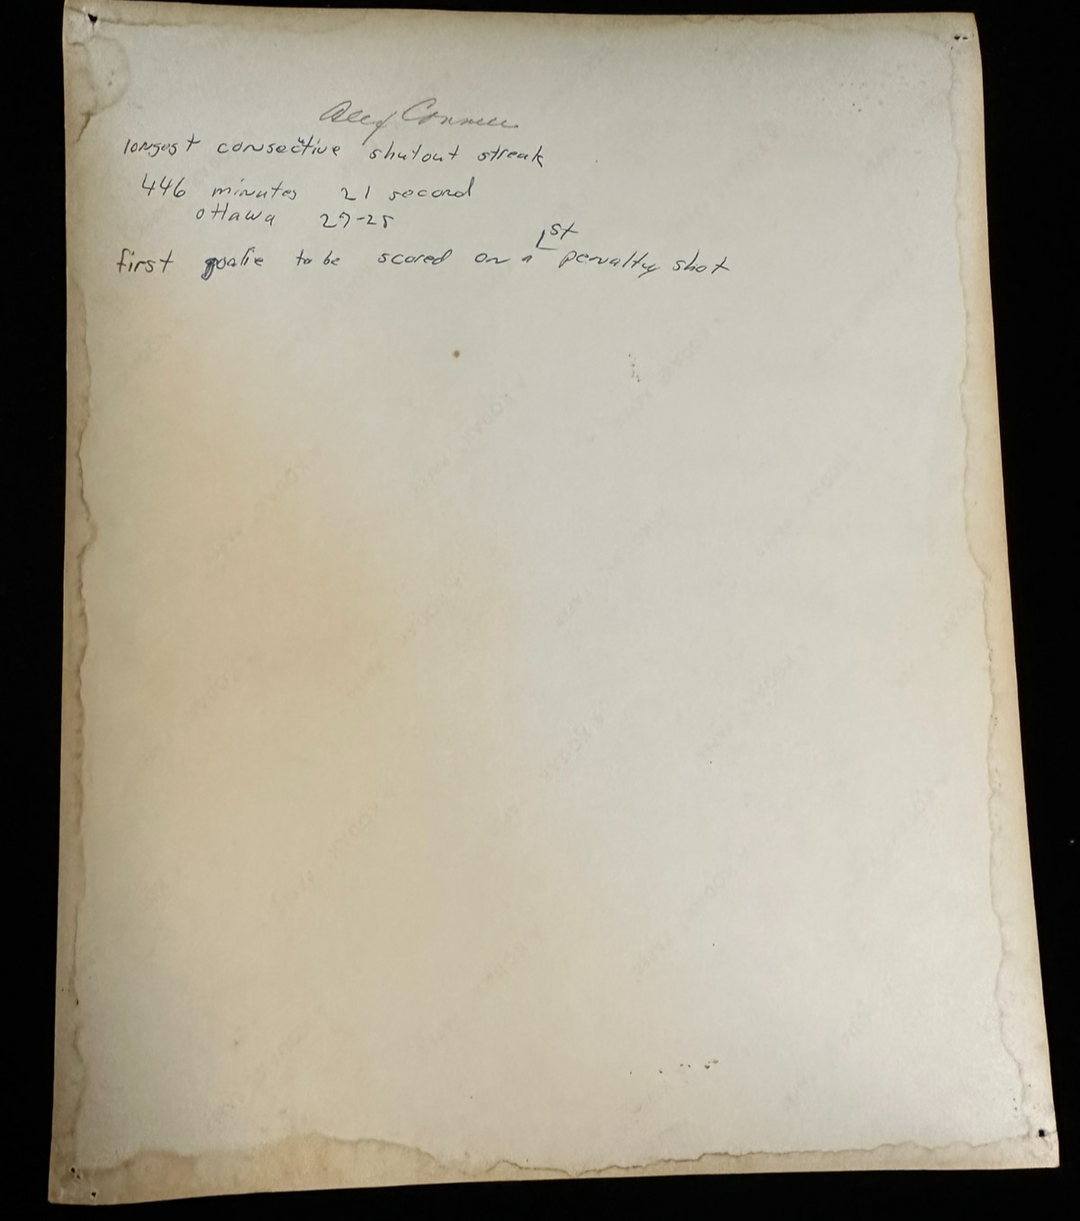 Alex Connell
longest consecutive shutout streak
446 minutes 21 second
Ottawa 27-28
1st
first goalie to be scored on a penalty shot
KODAK